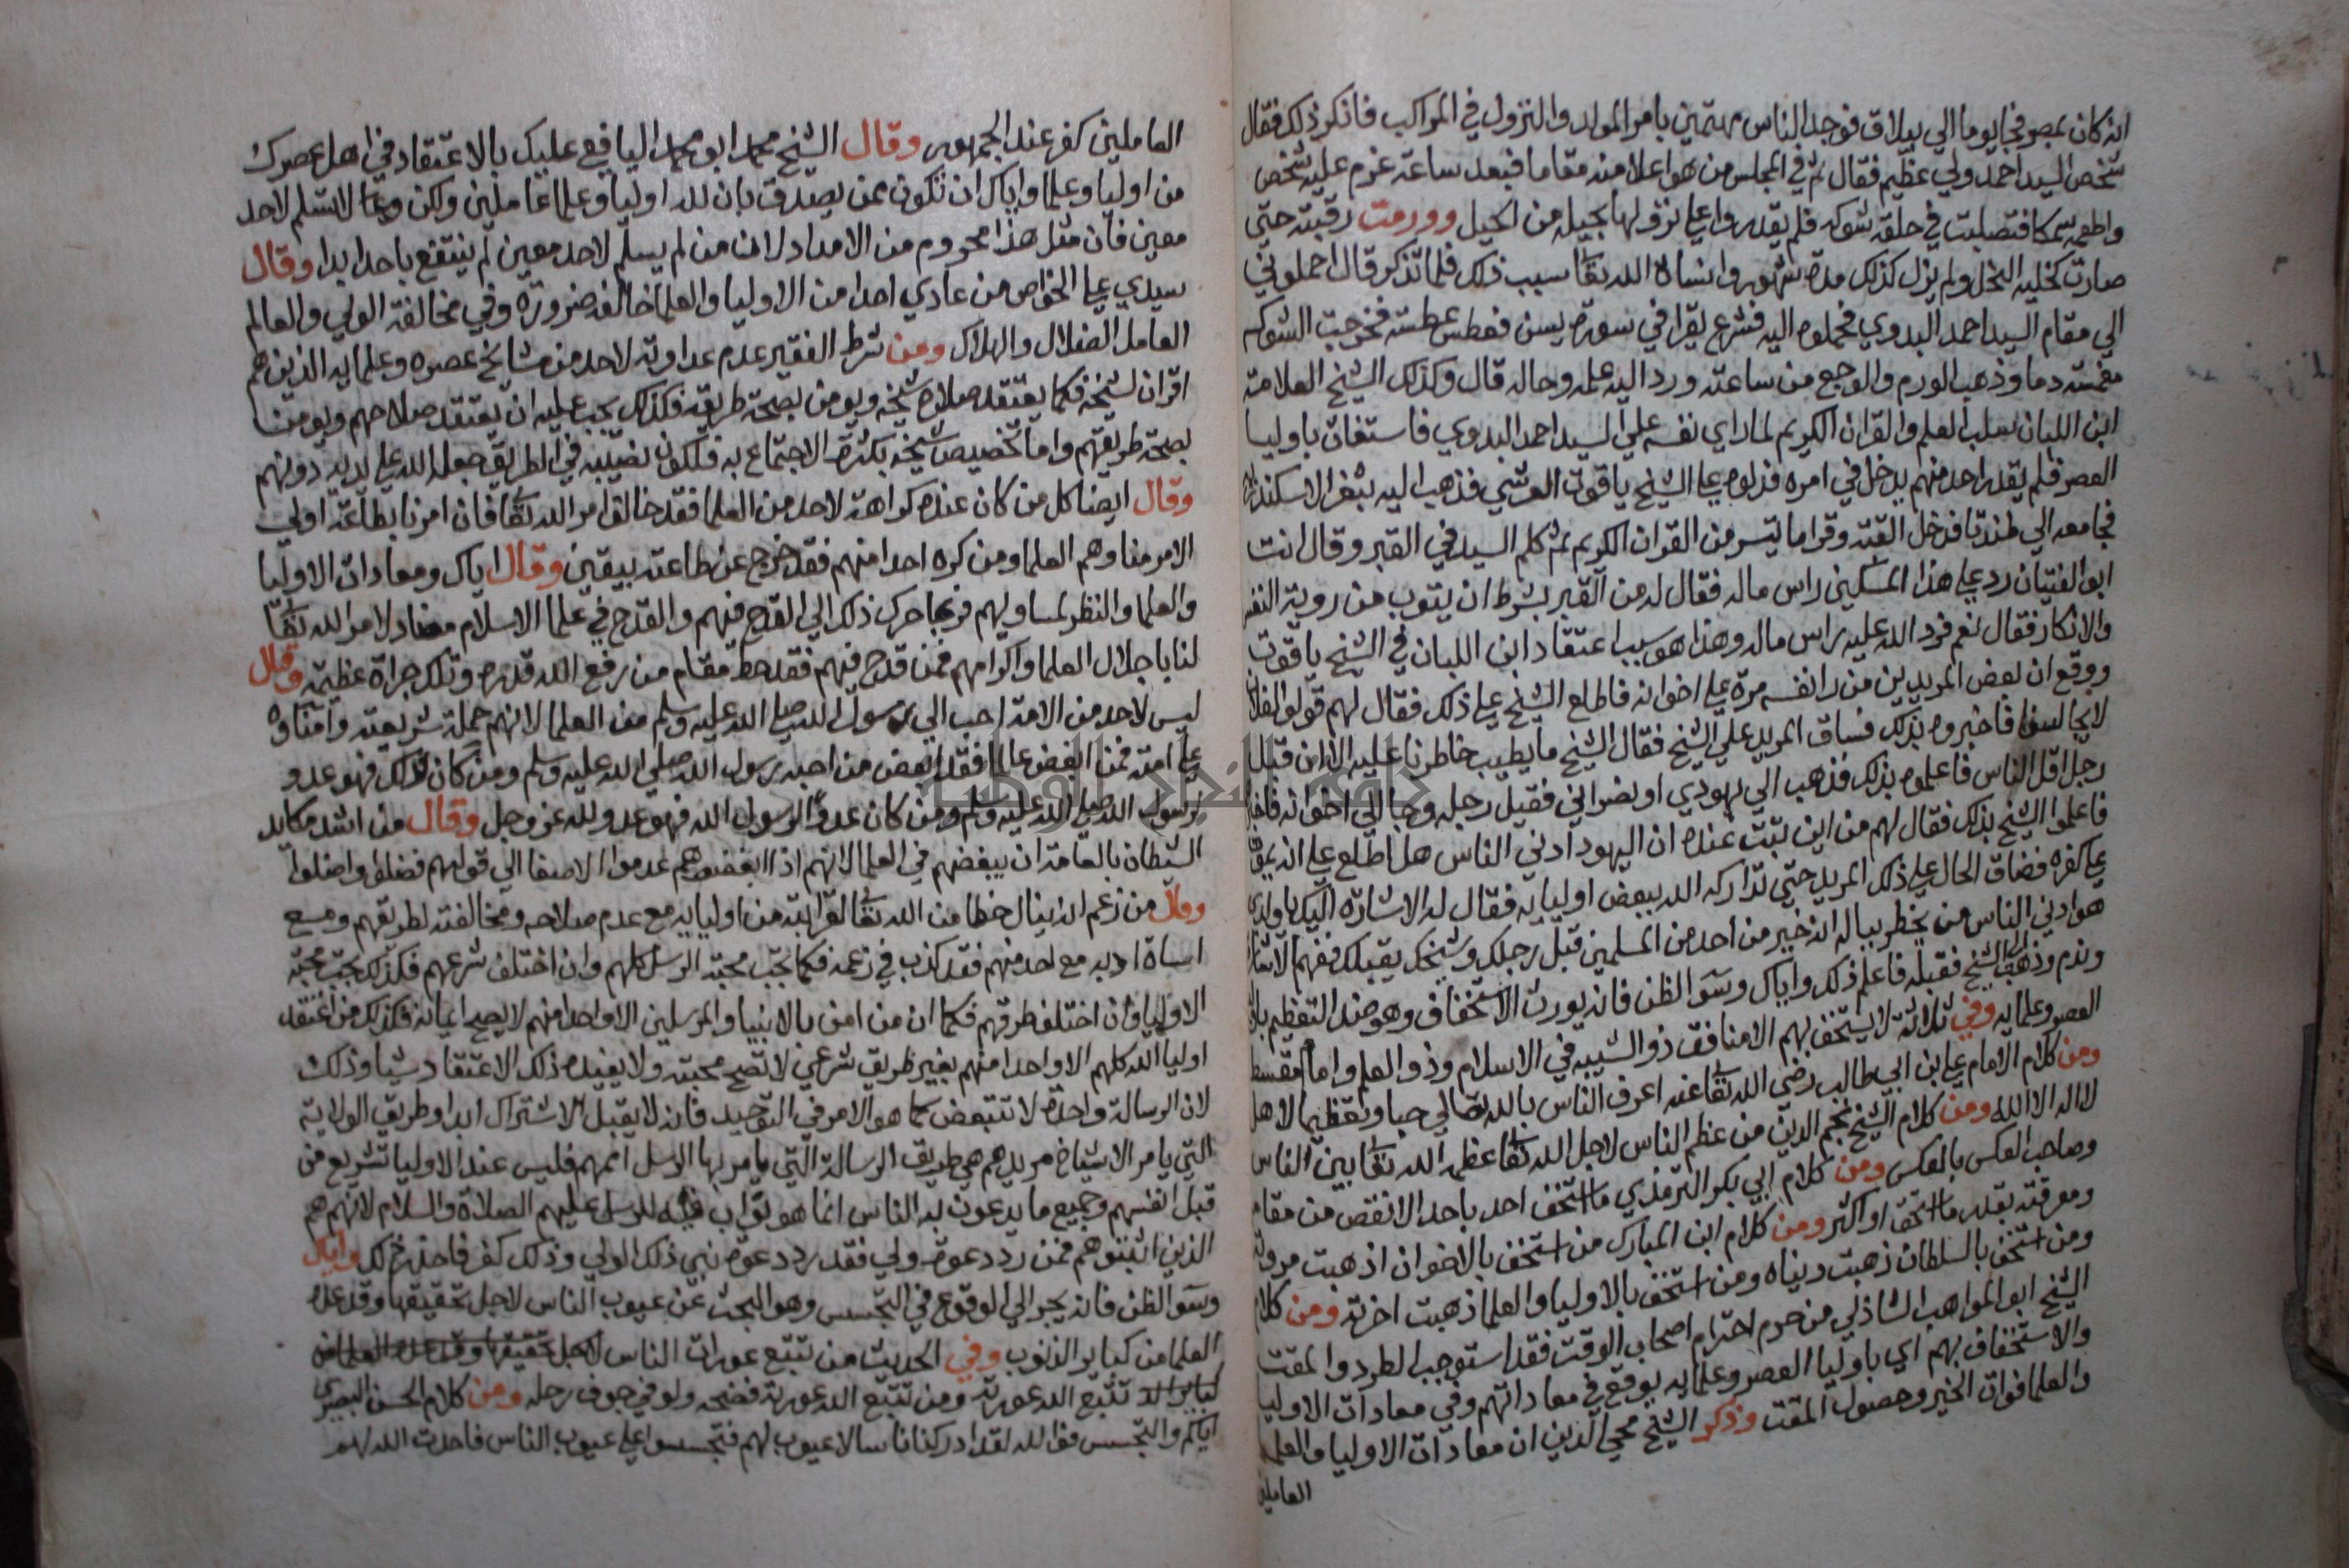 انه كان بمصر فجا يوما الي بيلاق فوجد الناس مهتمين بامر المولد والنزول في المراكب فانكر ذلك فقال
شخص السيد احمد ولي عظيم فقال ثم في المجلس من هو اعلا منه مقاما فبعد ساعة عزم عليه شخص
واطعمه سمكا فتصلبت في حلقه شوكه فلم يقدروا علي نزولها بحيله من الحيل وورمت رقبته حتي
صارت كخلية النحل ولم يزل كذلك مدة شهور وانساه الله تعا سبب ذلك فلما تذكر قال احملوني
الي مقام السيد احمد البدوي فحملوه اليه فشرع يقرا في سورة يسن فعطس عطسة فخرجت الشوكه
مغمسة دما وذهب الورم والوجع من ساعته ورد اليه علمه وحاله قال وكذلك الشيخ العلامة
ابن اللبان سلب العلم والقران الكريم لما راي نفسه علي السيد احمد البدوي فاستغاث باوليا
العصر فلم يقدر احد منهم يدخل في امره فدلوه علي الشيخ ياقوت العرشي فذهب اليه بثغر الاسكندرية
فجا معه الي طندتا فدخل القبة وقرا ما تيسر من القران الكريم ثم كلم السيد في القبر وقال انت
ابو الفتيان رد علي هذا المسكين راس ماله فقال له من القبر بشرط ان يتوب من روية النفس
والانكار فقال نعم فرد الله عليه راس ماله وهذا هو سبب اعتقاد ابن اللبان في الشيخ ياقوت
ووقع ان بعض المريدين من را نفسه مرة علي اخوانه فاطلع الشيخ علي ذلك فقال لهم قولوا لفلان
لا يجالسنا فاخبروه بذلك فساق المريد علي الشيخ فقال الشيخ ما يطيب خاطرنا عليه الا ان قبل
رجل اقل الناس فاعلموه بذلك فذهب الي يهودي او نصراني فقبل رجله وجا الي اخوانه فاخبرهم
فاعلموا الشيخ بذلك فقال لهم من اين ثبت عنده ان اليهود ادني الناس هل اطلع علي انه يموت
علي كفره فضاق الحال علي ذلك المريد حتي تداركه الله ببعض اوليايه فقال له الاشارة اليك يا ولدي
هو ادني الناس من يخطر بباله انه خير من احد من المسلمين قبل رجلك وشيخك يقبلك ففهم الاشارة
وندم وذهب الي الشيخ فقبله فاعلم ذلك واياك وسو الظن فانه يورث الاستخفاف وهو ضد التعظيم
العصر وعلمايه وفي ثلاثة لا يستخف بهم الا منافق ذو الشيبه في الاسلام وذو العلم وامام مقسط
ومن كلام الامام علي بن ابي طالب رضي الله تعا عنه اعرف الناس بالله تعالي حبا وتعظيما لاهل
لا اله الا الله ومن كلام الشيخ نجم الدين من عظم الناس لاجل الله تعا عظمه الله تعا بين الناس
وصاحب العكس بالعكس ومن كلام ابي بكر الترمذي ما استخف احد باحد الا نقص من مقامه
ومعرفته بقدر ما استخف او اكثر ومن كلام ابن المبارك من استخف بالاخوان اذهبت مروته
ومن استخف بالسلطان ذهبت دنياه ومن استخف بالاوليا والعلما ذهبت اخرته ومن كلام
الشيخ ابو المواهب الشاذلي من حرم احترام اصحاب الوقت فقد استوجب الطرد والمقت
والاستخفاف بهم اي باوليا العصر وعلمايه يوقع في معاداتهم وفي معادات الاوليا
والعلما فوات الخير وحصول المقت وذكر الشيخ محيي الدين ان معادات الاوليا والعلما
العاملين
العاملين كفر عند الجمهور وقال الشيخ محمد ابو محمد اليافع عليك بالاعتقاد في اهل عصرك
من اوليا وعلما واياك ان تكون ممن يصدق بان لله اوليا وعلما عاملين ولكن وعما لا تسلم لاحد
معين فان مثل هذا محروم من الامداد لان من لم يسلم لاحد معين لم ينتفع باحد ابدا وقال
سيدي علي الخواص من عادي احدا من الاوليا والعلما خالفه ضرورة وفي مخالفة الولي والعالم
العامل الضلال والهلاك ومن شرط الفقير عدم عداوته لاحد من مشايخ عصره وعلمايه الذين هم
اقران لشيخه فكما يعتقد صلاح شيخه ويومن بصحة طريقه فكذلك يجب عليه ان يعتقد صلاحهم ويومن
بصحة طريقهم واما تخصيص شيخه بكثرة الاجتماع به فلكون نصيبه في الطريق جعله الله علي يديه دونهم
وقال ايضا كل من كان عنده كراهة لاحد من العلما فقد خالف امر الله تعا فان امرنا بطاعة اولي
الامر منا وهم العلما ومن كره احدا منهم فقد خرج عن طاعته بيقين وقال اياك ومعادات الاوليا
والعلما والنظر لمساويهم فربما جرك ذلك الي القدح فيهم والقدح في علما الاسلام مضاد لامر الله تعا
لنا باجلال العلما واكرامهم فمن قدح فيهم فقد حط مقام من رفع الله قدره وتلك جراة عظيمة وقال
ليس لاحد من الامة احب الي رسول الله صلي الله عليه وسلم من العلما لانهم حملة شريعته وامناوه
علي امته فمن ابغض عالما فقد ابغض من احبه رسول الله صلي الله عليه وسلم ومن كان كذلك فهو عدو
رسول الله صلي الله عليه وسلم ومن كان عدوا لرسول الله فهو عدو لله عز وجل وقال من اشد مكايد
الشطان بالعامة ان يبغضهم في العلما لانهم اذا ابغضوهم عدموا الاصغا الي قولهم فضلوا واضلوا
وقال من زعم انه ينال حظا من الله تعا لقرابته من اوليايه مع عدم صلاحه ومخالفته لطريقهم ومع
اساة ادبه مع احد منهم فقد كذب في زعمه فكما تجب محبة الرسل كلهم وان اختلف شرعهم فكذلك تجب محبة
الاوليا وان اختلف طرقهم فكما ان من امن بالانبيا والمرسلين الا واحدا منهم لا يصح ايمانه فكذلك من اعتقد
اوليا الله كلهم الا واحدا منهم بغير طريق شرعي لا تصح محبته ولا يفيده ذلك الاعتقاد شيا وذلك
لان الرسالة واحدة لا تتبعض كما هو الامر في التوحيد فانه لا يقبل الاشتراك ابدا وطريق الولاية
التي يامر الاشياخ مريدهم هي طريق الرسالة التي يامر بها الرسل اممهم فليس عند الاوليا تشريع من
قبل انفسهم وجميع ما يدعون به الناس انما هو نواب فيه للرسل عليهم الصلاة والسلام لانهم هم
الذين اثبتوهم فمن رد دعوة ولي فقد رد دعوة نبي ذلك الولي وذلك كفر فاحذر ذلك واياك
وسو الظن فانه يجر الي الوقوع في التجسس وهو البحث عن عيوب الناس لاجل تحقيقها وقد عده
العلما من كباير الذنوب وفي الحديث من تتبع عورات الناس لاجل تحقيقها وقد عده العلما من
كباير الذ تتبع الله عورته ومن تتبع الله عورته فضحه ولو في جوف رحله ومن كلام الحسن البصري
اياكم والتجسس فوالله لقد ادركنا ناسا لا عيوب لهم فتجسسوا علي عيوب الناس فاحدث الله لهم